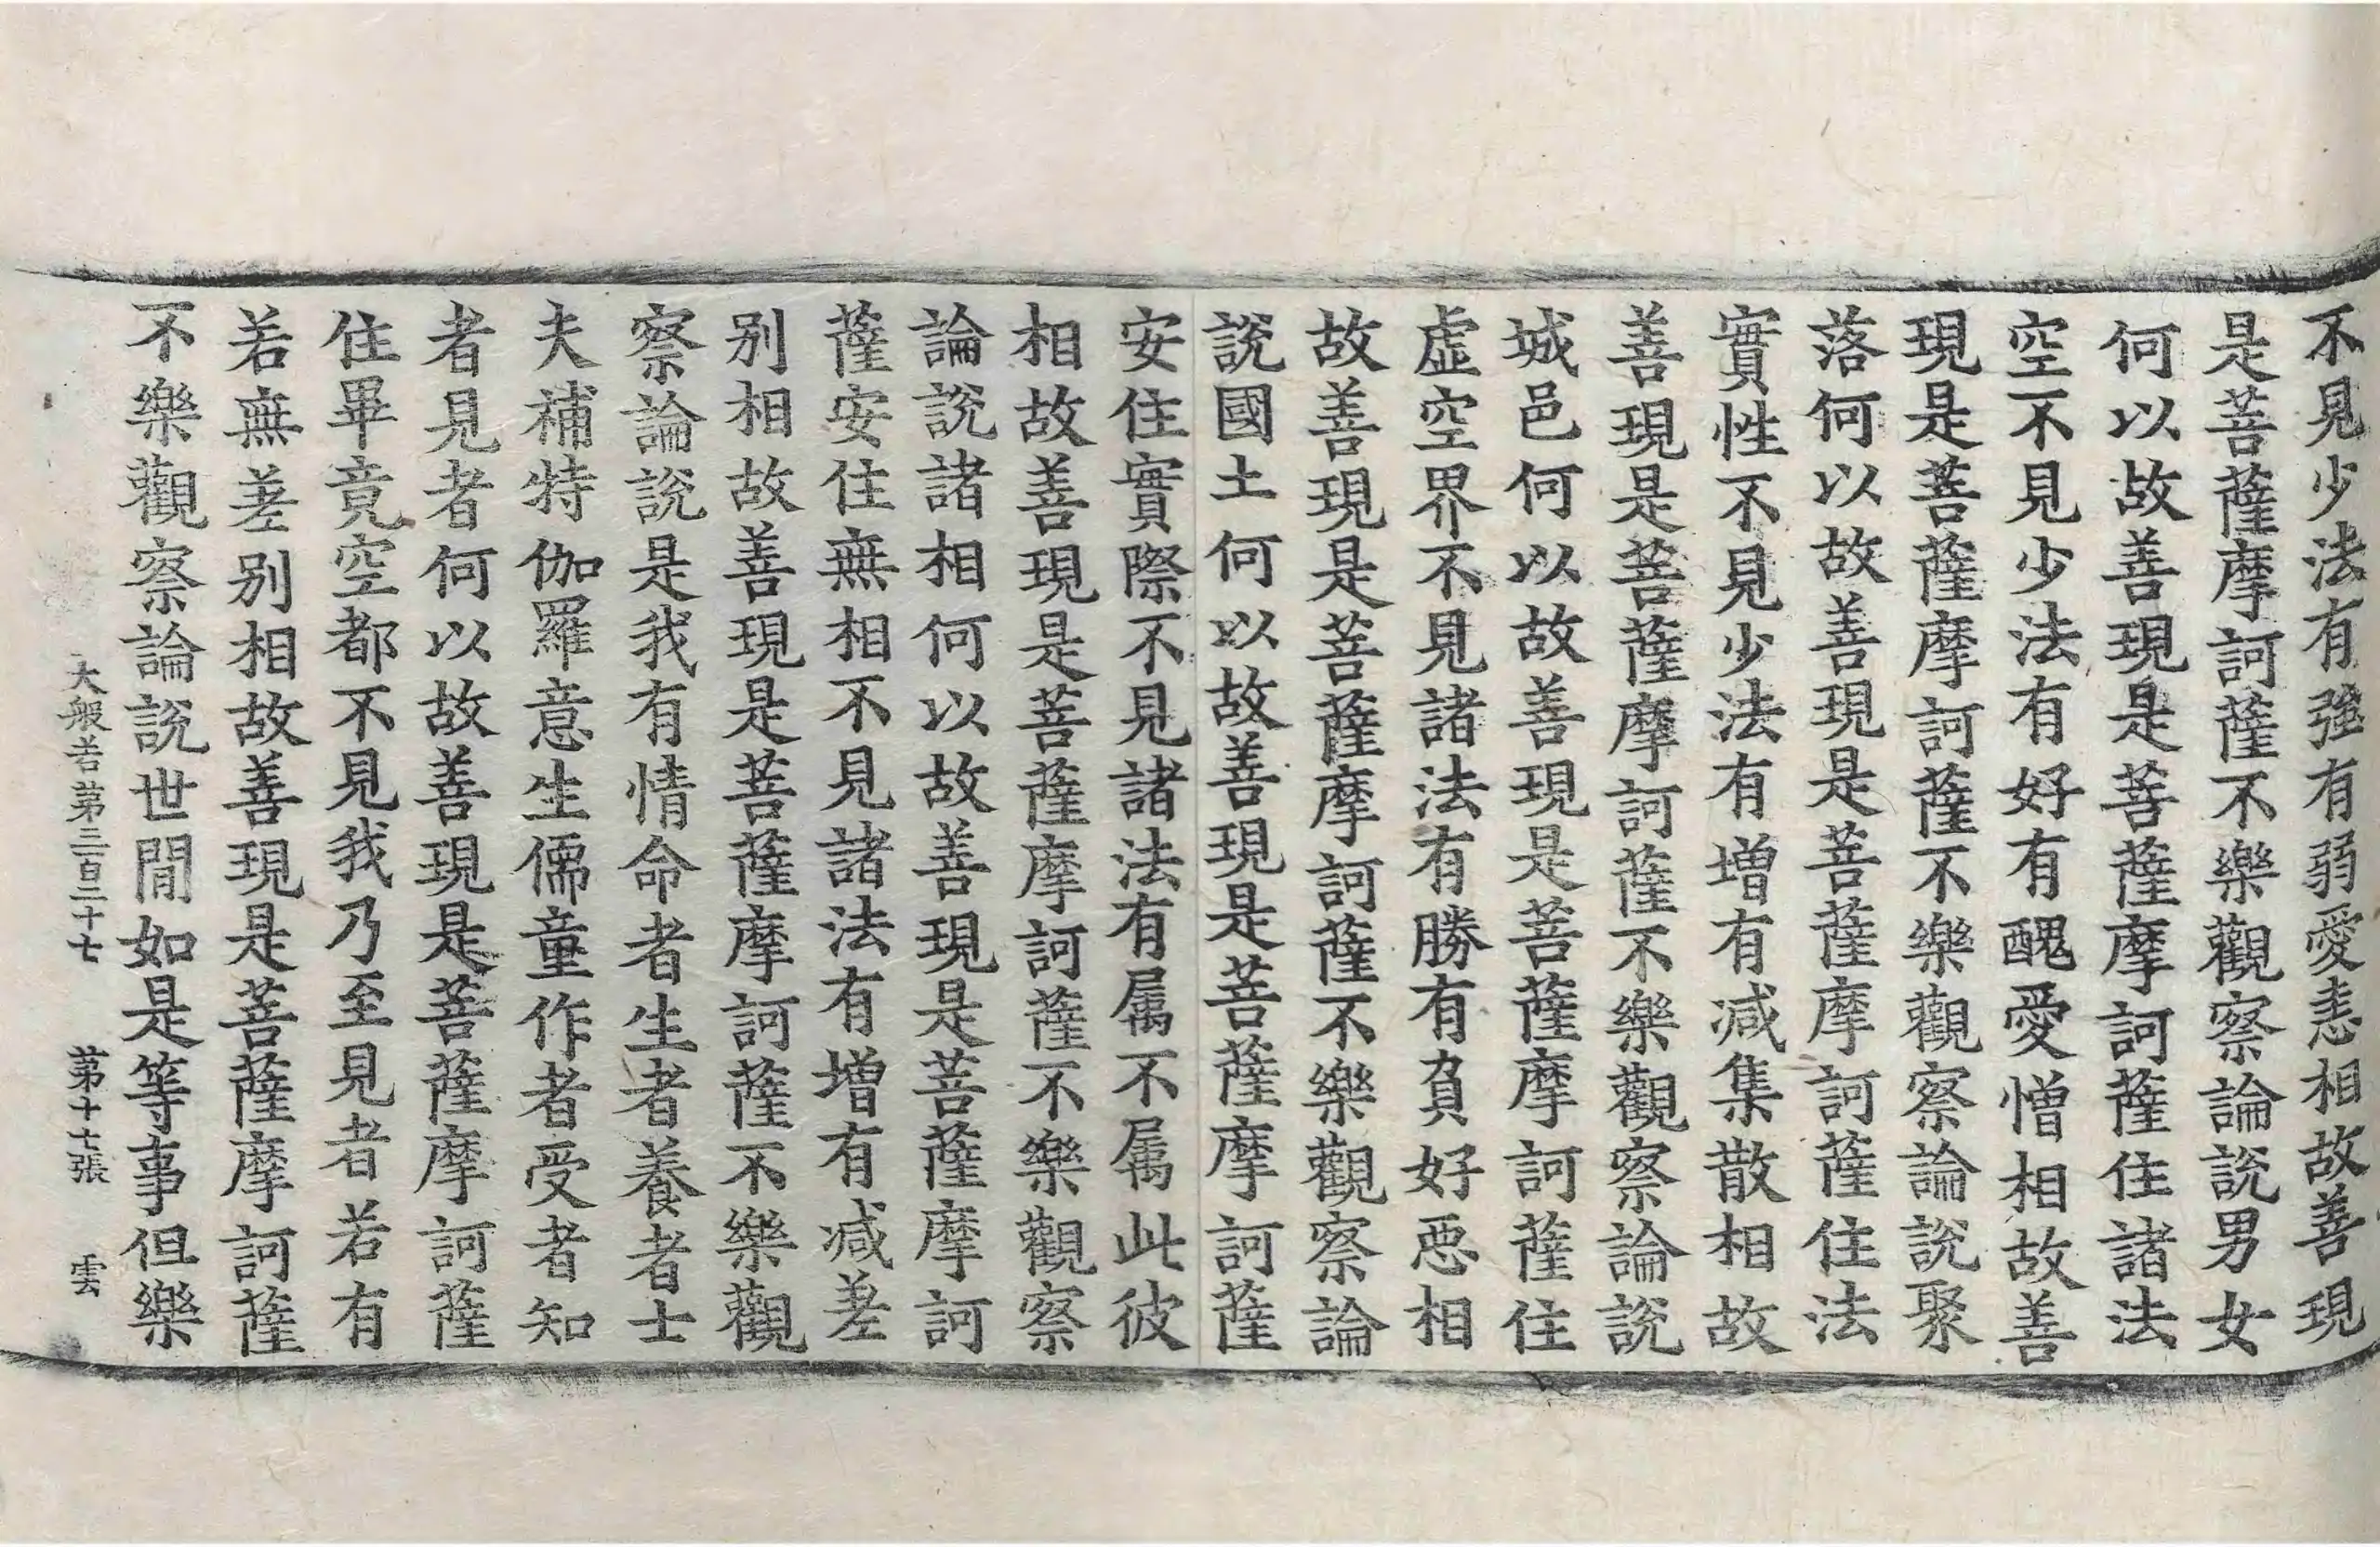 不見少法有強有弱愛恚相故善現
是菩薩摩訶薩不樂觀察論說男女
何以故善現是菩薩摩訶薩住諸法
空不見少法有好有醜愛憎相故善
現是菩薩摩訶薩不樂觀察論說聚
落何以故善現是菩薩摩訶薩住法
實性不見少法有增有減集散相故
善現是菩薩摩訶薩不樂觀察論說
城邑何以故善現是菩薩摩訶薩住
虛空界不見諸法有勝有負好惡相
故善現是菩薩摩訶薩不樂觀察論
說國土何以故善現是菩薩摩訶薩
安住實際不見諸法有属不属此彼
相故善現是菩薩摩訶薩不樂觀察
論說諸相何以故善現是菩薩摩訶
薩安住無相不見諸法有增有減差
别相故善現是菩薩摩訶薩不樂觀
察論說是我有情命者生者養者士
夫補特伽羅意生儒童作者受者知
者見者何以故善現是菩薩摩訶薩
住畢竟空都不見我乃至見者若有
若無差别相故善現是菩薩摩訶薩
不樂觀察論說世間如是等事但樂
大般若第三百二十七 第十七張 雲